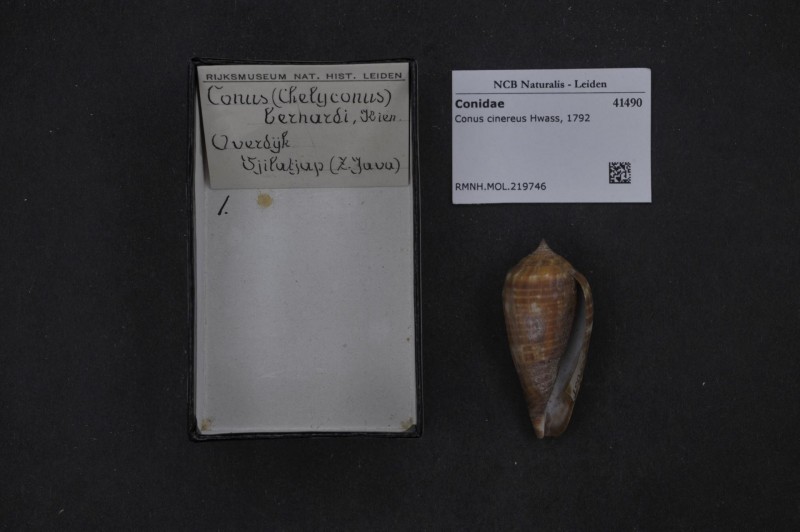 RIJKSMUSEUM NAT. HIST. LEIDEN
Conus (Chelyconus)
berhardi, Kien.
Overdijk
Tjilatjap (Z. Java)
1.
NCB Naturalis - Leiden
Conidae 41490
Conus cinereus Hwass, 1792
RMNH.MOL.219746